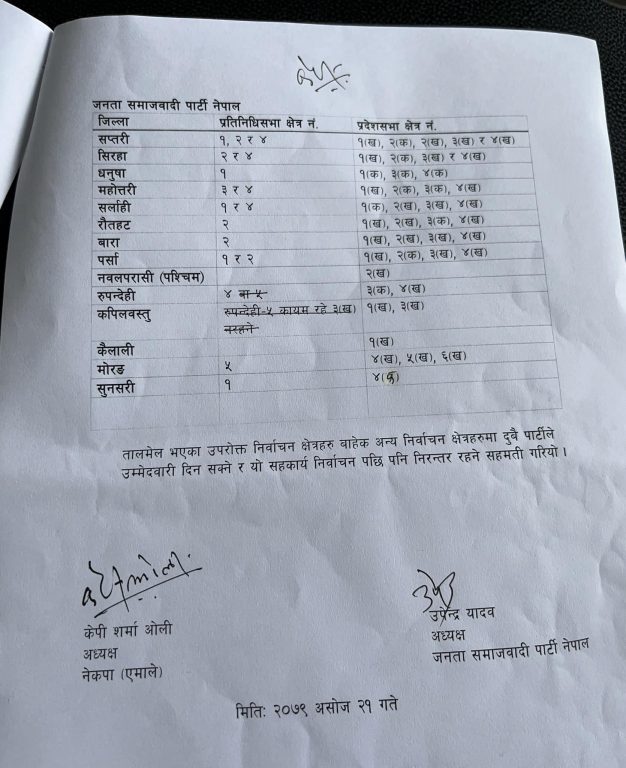 जनता समाजवादी पार्टी नेपाल
जिल्ला प्रतिनिधिसभा क्षेत्र नं. प्रदेशसभा क्षेत्र नं.
सप्तरी १, २ र ४ १(ख), २(क), २(ख), ३(ख) र ४(ख)
सिरहा २ र ४ १(ख), २(क), ३(ख) र ४(ख)
धनुषा १ १(क), ३(क), ४(क)
महोत्तरी ३ र ४ १(ख), २(क), ३(क), ४(ख)
सर्लाही १ र ४ १(क), २(ख), ३(ख), ४(ख)
रौतहट २ १(ख), २(ख), ३(क), ४(ख)
बारा २ १(ख), २(ख), ३(ख), ४(ख)
पर्सा १ र २ १(ख), २(क), ३(ख), ४(ख)
नवलपरासी (पश्चिम) २(ख)
रुपन्देही ४ वा ५ ३(क), ४(ख)
कपिलवस्तु रुपन्देही-५ कायम रहे ३(ख) १(ख), ३(ख)
नरहने
कैलाली १(ख)
मोरङ ५ ४(ख), ५(ख), ६(ख)
सुनसरी १ ४(क)
तालमेल भएका उपरोक्त निर्वाचन क्षेत्रहरु बाहेक अन्य निर्वाचन क्षेत्रहरुमा दुबै पार्टीले
उम्मेदवारी दिन सक्ने र यो सहकार्य निर्वाचन पछि पनि निरन्तर रहने सहमती गरियो ।
केपी शर्मा ओली
अध्यक्ष
नेकपा (एमाले)
उपेन्द्र यादव
अध्यक्ष
जनता समाजवादी पार्टी नेपाल
मिति: २०७९ असोज २१ गते